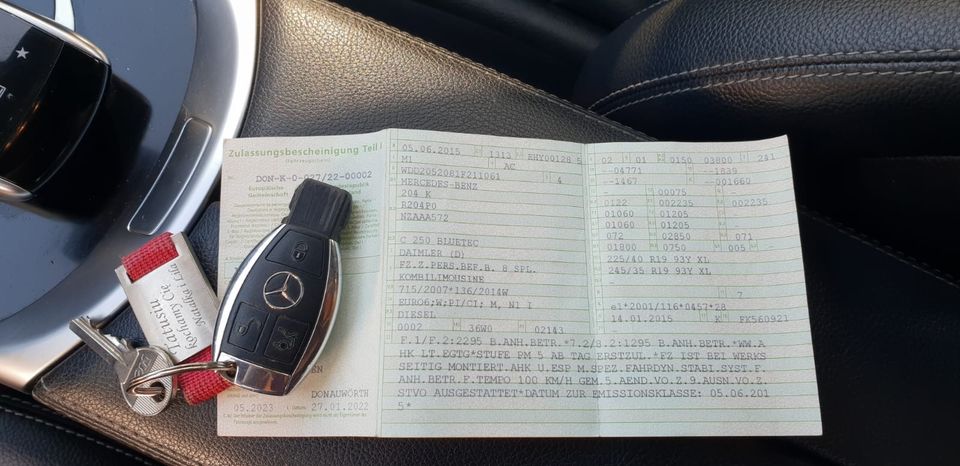 Zulassungsbescheinigung Teil I
(Fahrzeugschein)
Nr. DON-K-0-027/22-00002
Europäische
Gemeinschaft
DONAUWÖRTH
05.2023 27.01.2022
Tatusiu
Kochamy Cię
Natalka i Lila
05.06.2015 1313 RHY00128 5
M1 AC
WDD2052081F211061 4
MERCEDES-BENZ
204 K
R204P0
NZAAA572
C 250 BLUETEC
DAIMLER (D)
FZ.Z.PERS.BEF.B. 8 SPL.
KOMBILIMOUSINE
715/2007*136/2014W
EURO6;W;PI/CI; M, N1 I
DIESEL
0002 36W0 02143
02 01 0150 03800 241
--04771 --1839
--1467 -001660
00075 -
0122 002235 002235
01060 01205
01060 01205 -
072 02850 071
01800 0750 005 -
225/40 R19 93Y XL
245/35 R19 93Y XL
-
7
e1*2001/116*0457*28
14.01.2015 K FK560921
F.1/F.2:2295 B.ANH.BETR.*7.2/8.2:1295 B.ANH.BETR.*WW.A
HK LT.EGTG*STUFE PM 5 AB TAG ERSTZUL.*FZ IST BEI WERKS
SEITIG MONTIERT.AHK U.ESP M.SPEZ.FAHRDYN.STABI.SYST.F.
ANH.BETR.F.TEMPO 100 KM/H GEM.5.AEND.VO.Z.9.AUSN.VO.Z.
STVO AUSGESTATTET*DATUM ZUR EMISSIONSKLASSE: 05.06.201
5*